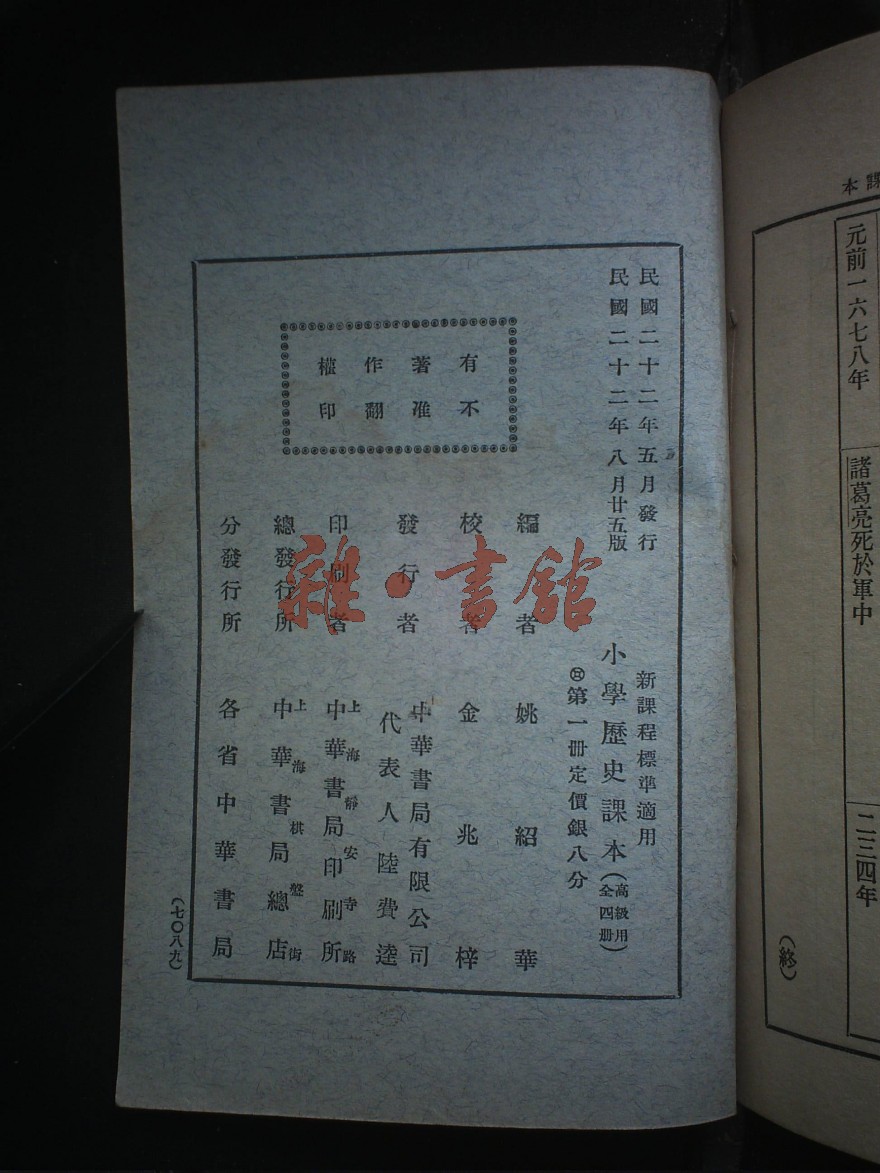 課本
元前一六七八年
諸葛亮死於軍中
二三四年
(終)
民國二十二年五月發行
民國二十二年八月廿五版
新課程標準適用
小學歷史課本(高級用全四冊)
第一冊定價銀八分
有著作權
不准翻印
編者 姚紹華
校者 金兆梓
發行者 中華書局有限公司
代表人陸費逵
印刷者 上海靜安寺路
中華書局印刷所
總發行所 上海棋盤街
中華書局總店
分發行所 各省中華書局
(七〇八九)
雜·書館